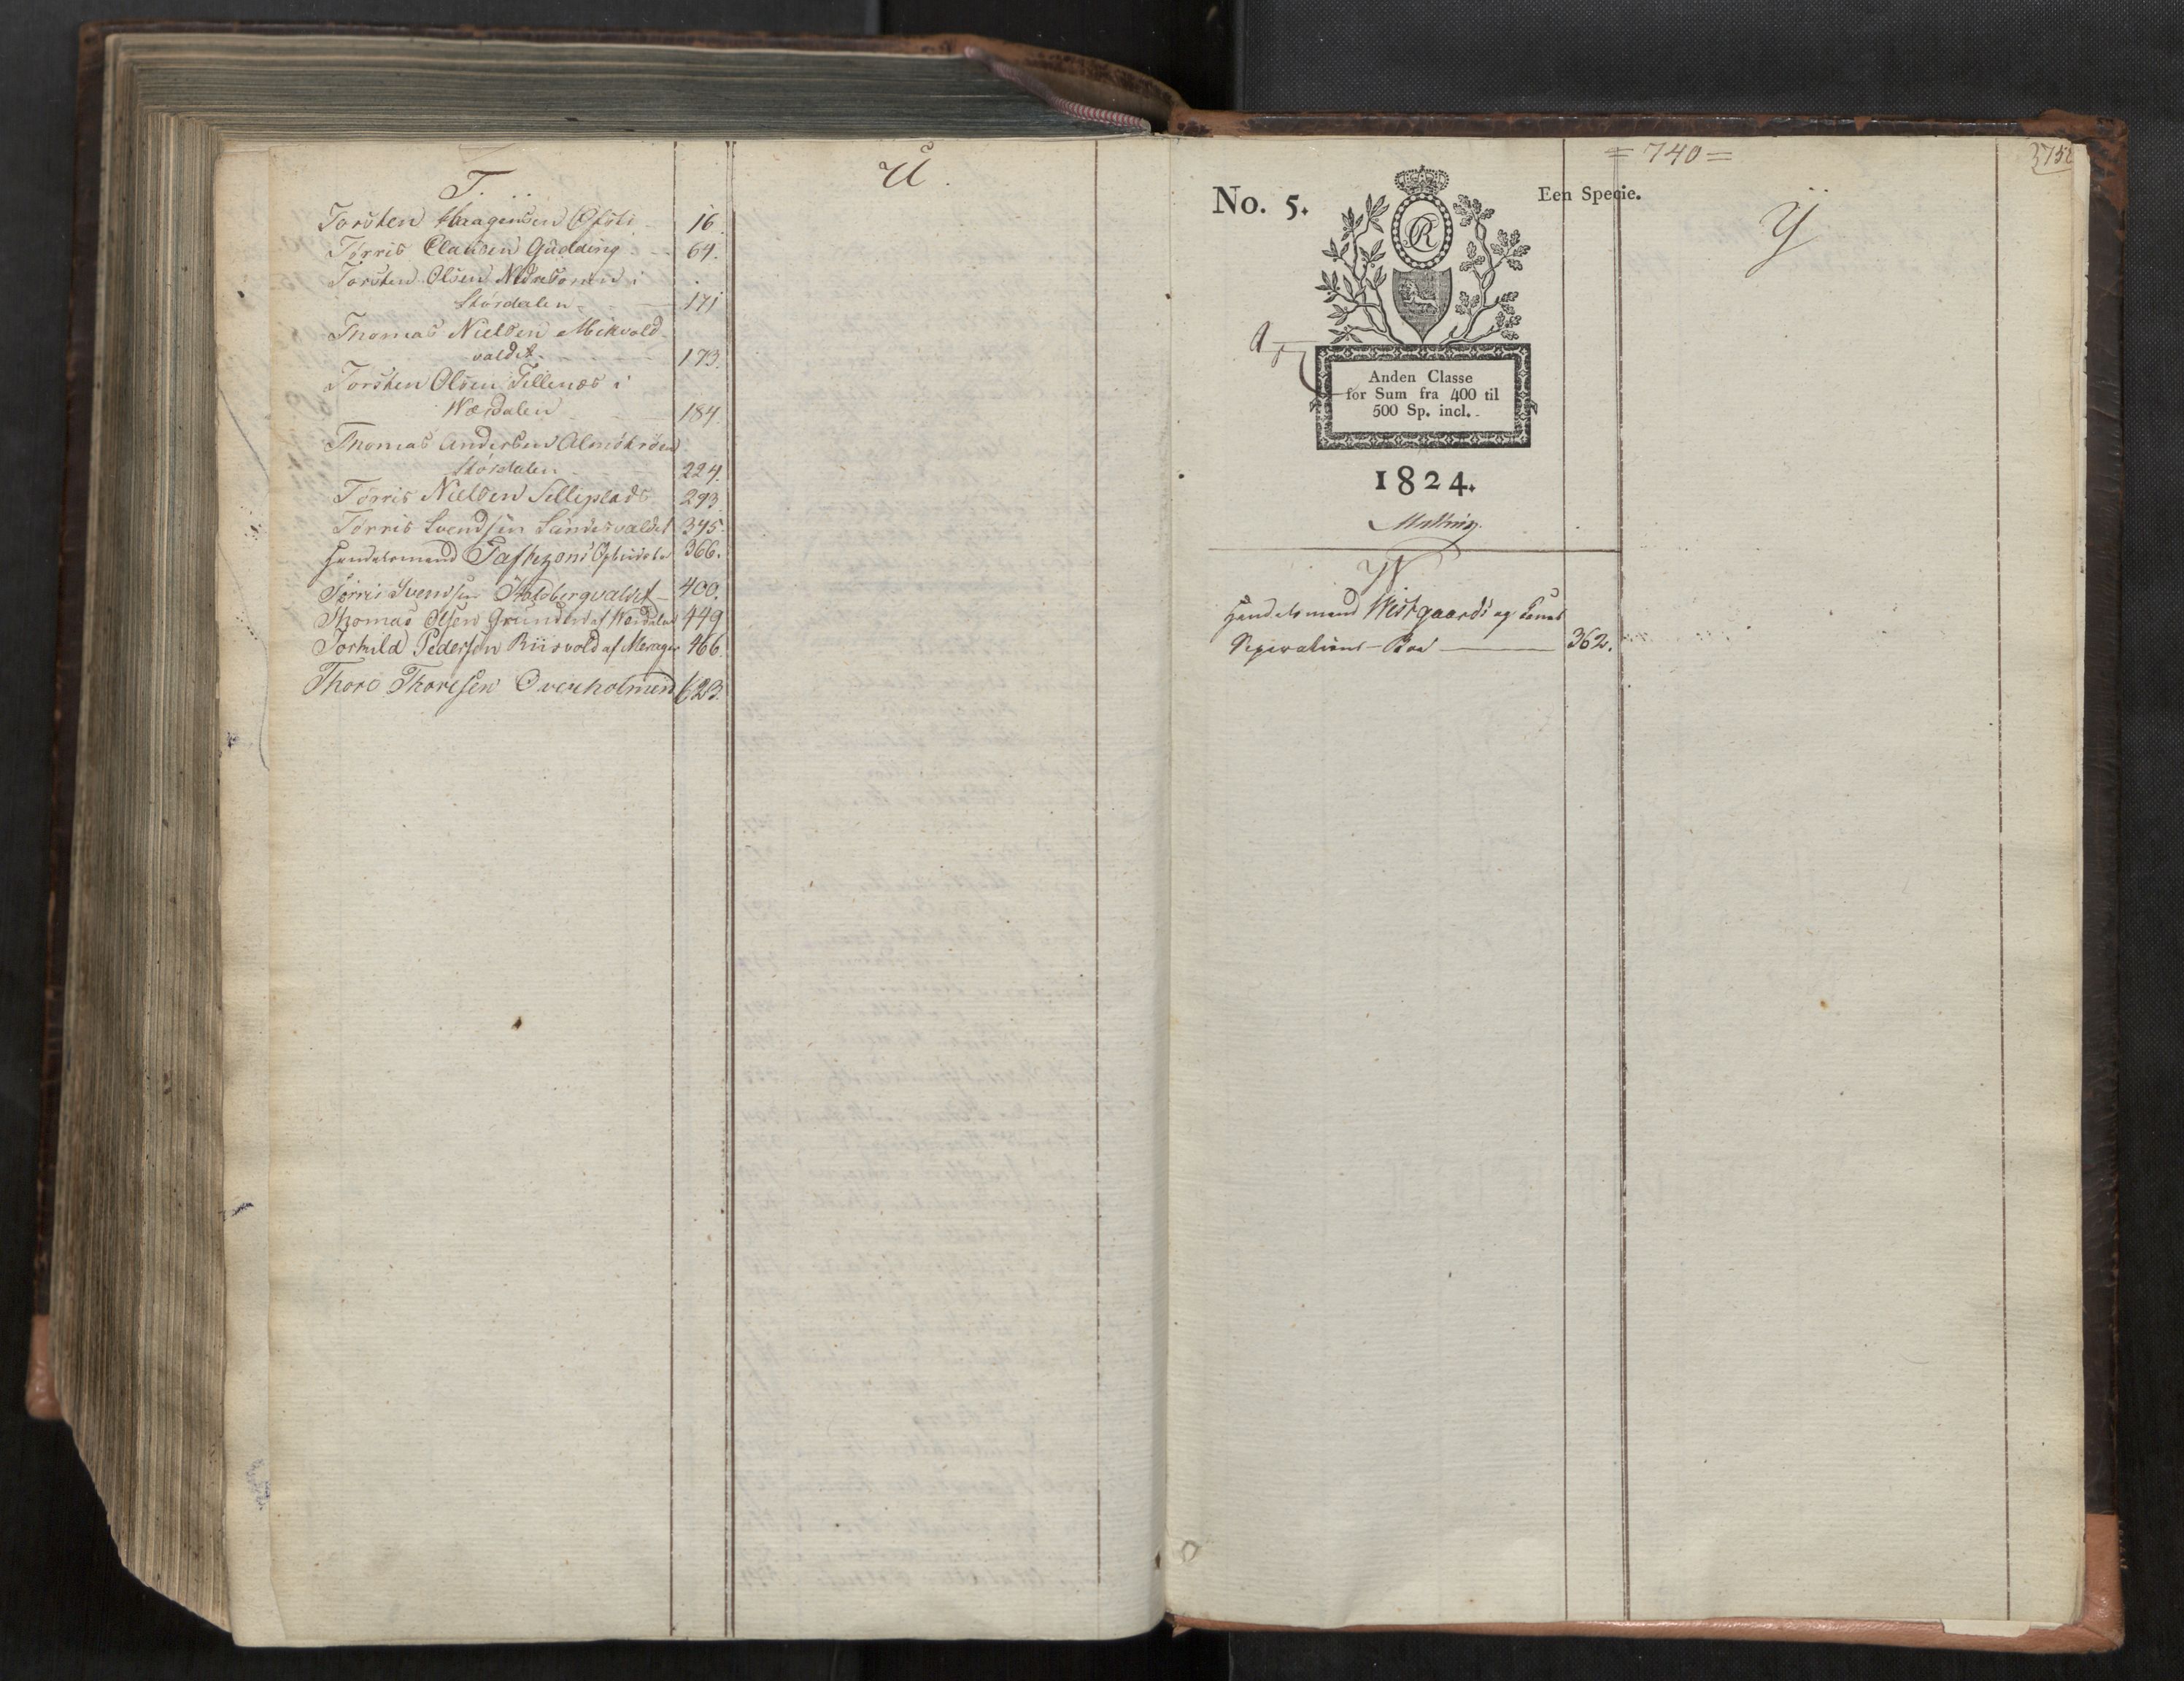 T.
Torsten Haagensen Opsti 16.
Tørris Clausen Gudding 64.
Torsten Olsen Nedre i
Størdalen 171
Thomas Nielsen Mikvold
valdet 173.
Torsten Olsen Tillenæs i
Wærdalen 184.
Thomas Andersen
Størdalen 224.
Tørris Nielsen Selleplads 293.
Tørris Svendsen Sundesvaldet 345.
Handelsmand 366.
Tørris Svendsen Holdbergvaldet – 400.
Thomas Olsen Grunden af Wærdalen 449
Torkild Pedersen Riisvold af Meragr 466.
Thore Thoresen Overholmen 623.
U.
= 740 =
No. 5.
Een Specie.
CR
Anden Classe
for Sum fra 400 til
500 Sp. incl.
1824.
Malling
W
Handelsmand Wistgaards og Kones
Seperations-Boe — 362.
Y